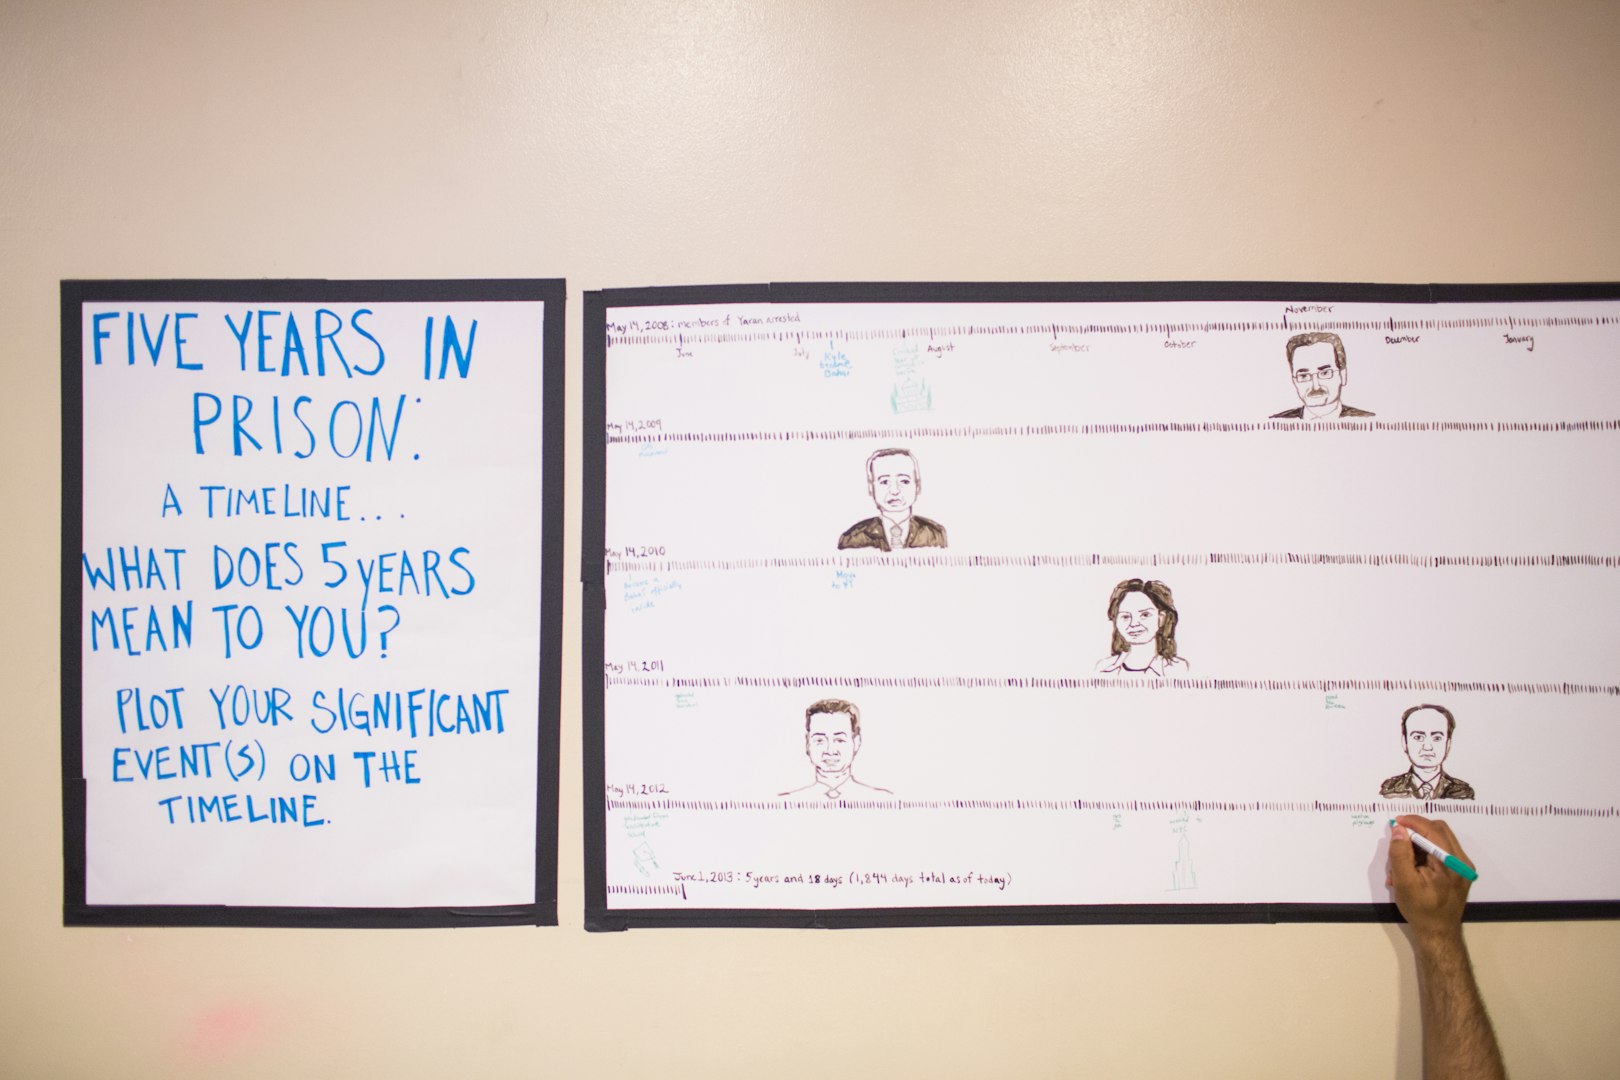 FIVE YEARS IN
PRISON:
A TIMELINE...
WHAT DOES 5 YEARS
MEAN TO YOU?
PLOT YOUR SIGNIFICANT
EVENT(S) ON THE
TIMELINE.
May 14, 2008: members of Yaran arrested
November
June
July
August
September
October
December
January
Kyle
Bahar
May 14, 2009
May 14, 2010
Became a
Baha'i officially
Move
to NY
May 14, 2011
May 14, 2012
NYC
June 1, 2013: 5 years and 18 days (1,844 days total as of today)